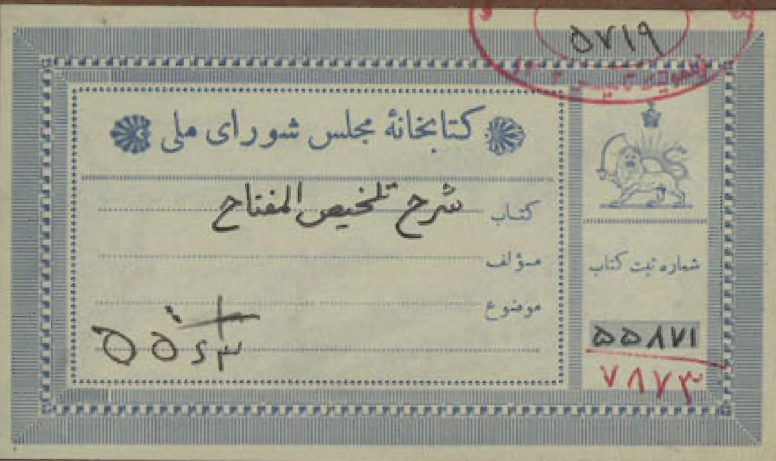 ۵۷۱۹
کتابخانهٔ مجلس شورای ملی
کتاب شرح تلخیص المفتاح
مؤلف
موضوع
شماره ثبت کتاب
۵۵۸۷۱
۷۸۷۳